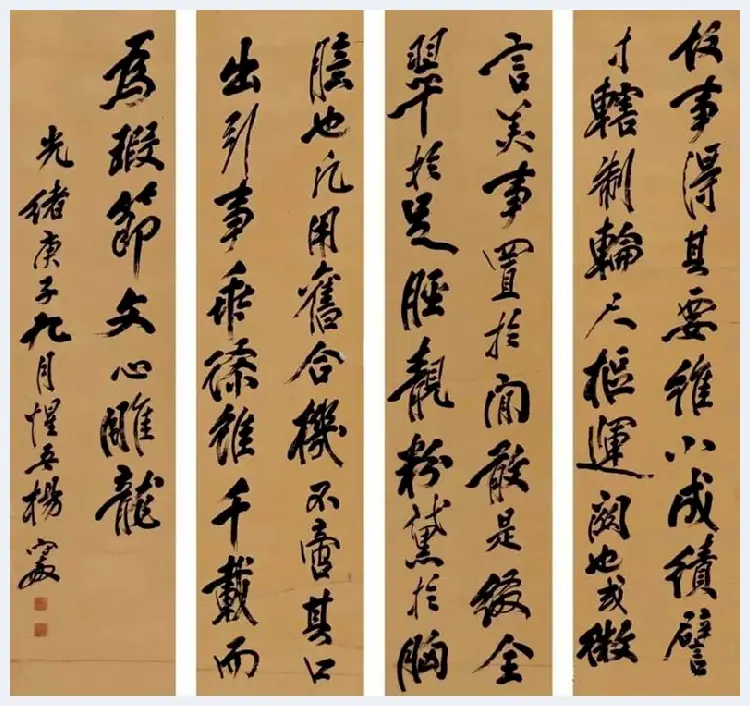 故事得其要雖小成績譬
寸轄制輪尺樞運關也或微
言美事置於閒散是綴金
翠於足脛靚粉黛於胸
臆也凡用舊合機不啻其口
出引事乖繆雖千載而
為瑕節文心雕龍
光緒庚子九月惺吾楊守敬